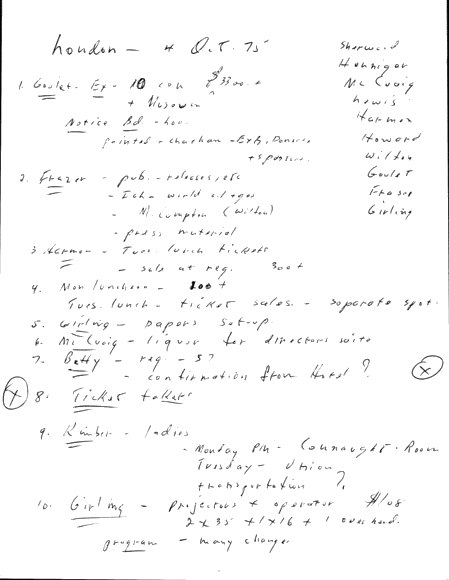 London - 4 Oct. 75
Sherwood
Hannigan
McCuaig
Lewis
Harmon
Howard
Wilton
Goulet
Fraser
Girling
1. Goulet - Ex - 10 con $3300.+
+ Museum
Notice Bd - hon.
painted - Chatham - Exh, Donors
+ sponsors.
2. Frazer - pub. - releases, etc
- world
- M. Compton (Wilton)
- press material
3. Harmon - Tues. lunch tickets
- sale at reg. 300+
4. Mon luncheon - 200+
Tues. lunch - ticket sales. - separate spot.
5. Girling - papers set-up
6. McCuaig - liquor for directors suite
7. Betty - reg. - 5?
- confirmation from Hotel?
X X
8. Ticket takers
9. Kimber - ladies
- Monday PM - Connaught Room
Tuesday - Union
transportation?
10. Girling - projectors + operator $108
2 x 35 + 1 x 16 + 1 overhead.
program - many changes